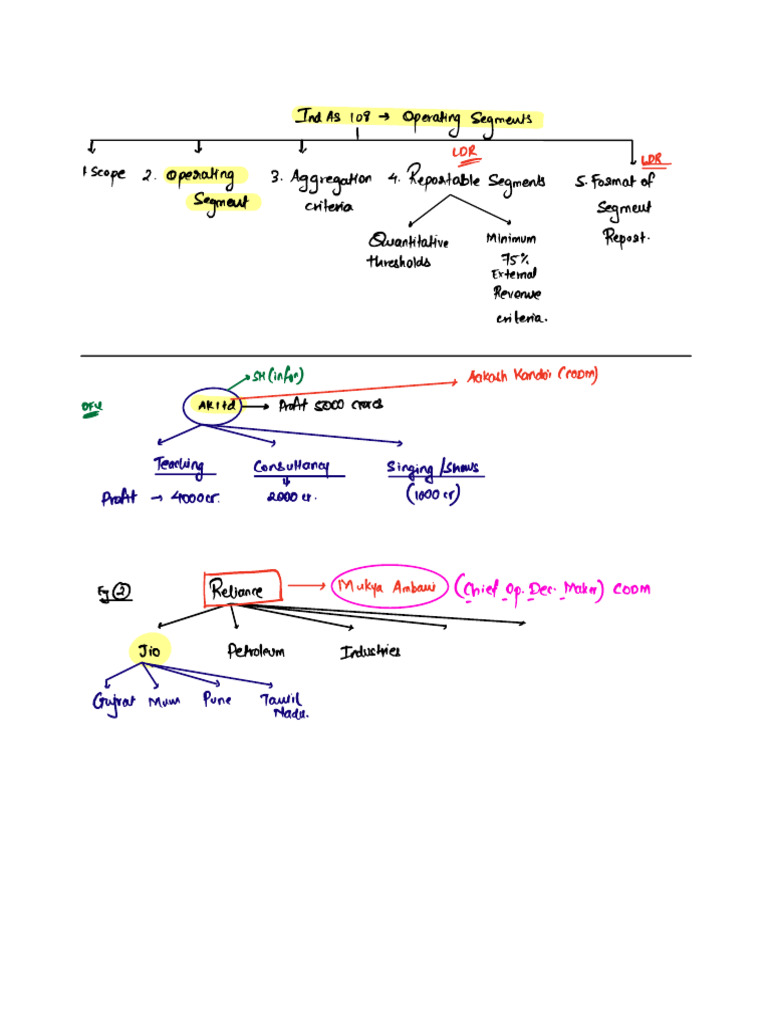 Ind AS 108 → Operating Segments
LDR
LDR
1 Scope 2. Operating Segment 3. Aggregation criteria 4. Reportable Segments 5. Format of Segment Report.
Quantitative thresholds
Minimum 75% External Revenue criteria.
SH (infor)
Aakash Kandoi (CODM)
AK Ltd → Profit 5000 crores
Teaching Consultancy Singing/Shows
Profit → 4000 cr. 2000 cr. (1000 cr)
Eg ② Reliance → Mukya Ambani (Chief Op. Dec. Maker) CODM
Jio Petroleum Industries
Gujrat Mum Pune Tamil Nadu.